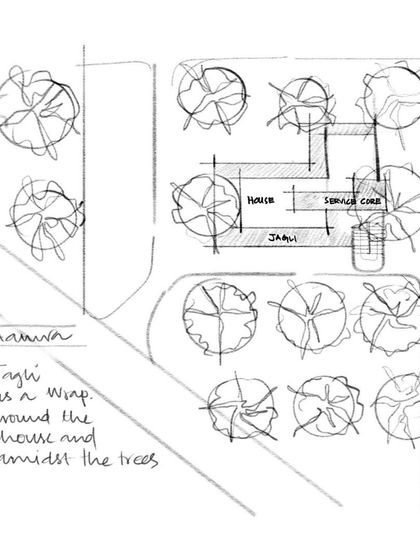 HOUSE
SERVICE CORE
JAGLI
Jagli
as a wrap.
around the
house and
amidst the trees